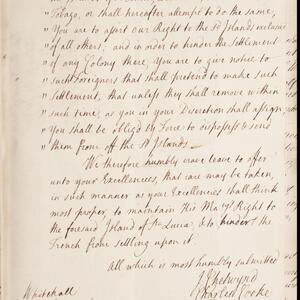 " Tobago, or shall hereafter attempt to do the same,
" You are to assert our Right to the sd Islands exclusive
" of all others; and in order to hinder the Settlement
" of any Colony there, You are to give notice to
" such Foreigners that shall pretend to make such
" Settlement, that unless they shall remove within
" such time, as you in your Discretion shall assign,
" You shall be obliged by Force to dispossess & send
" them from off the sd Islands.
We therefore humbly crave leave to offer
unto your Excellencies, that care may be taken,
in such manner as your Excellencies shall think
most proper, to maintain His Maty's Right to
the foresaid Island of Sta Lucia, & to hinder the
French from settling upon it.
All which is most humbly submitted
J Chetwynd
Charles Cooke
Whitehall